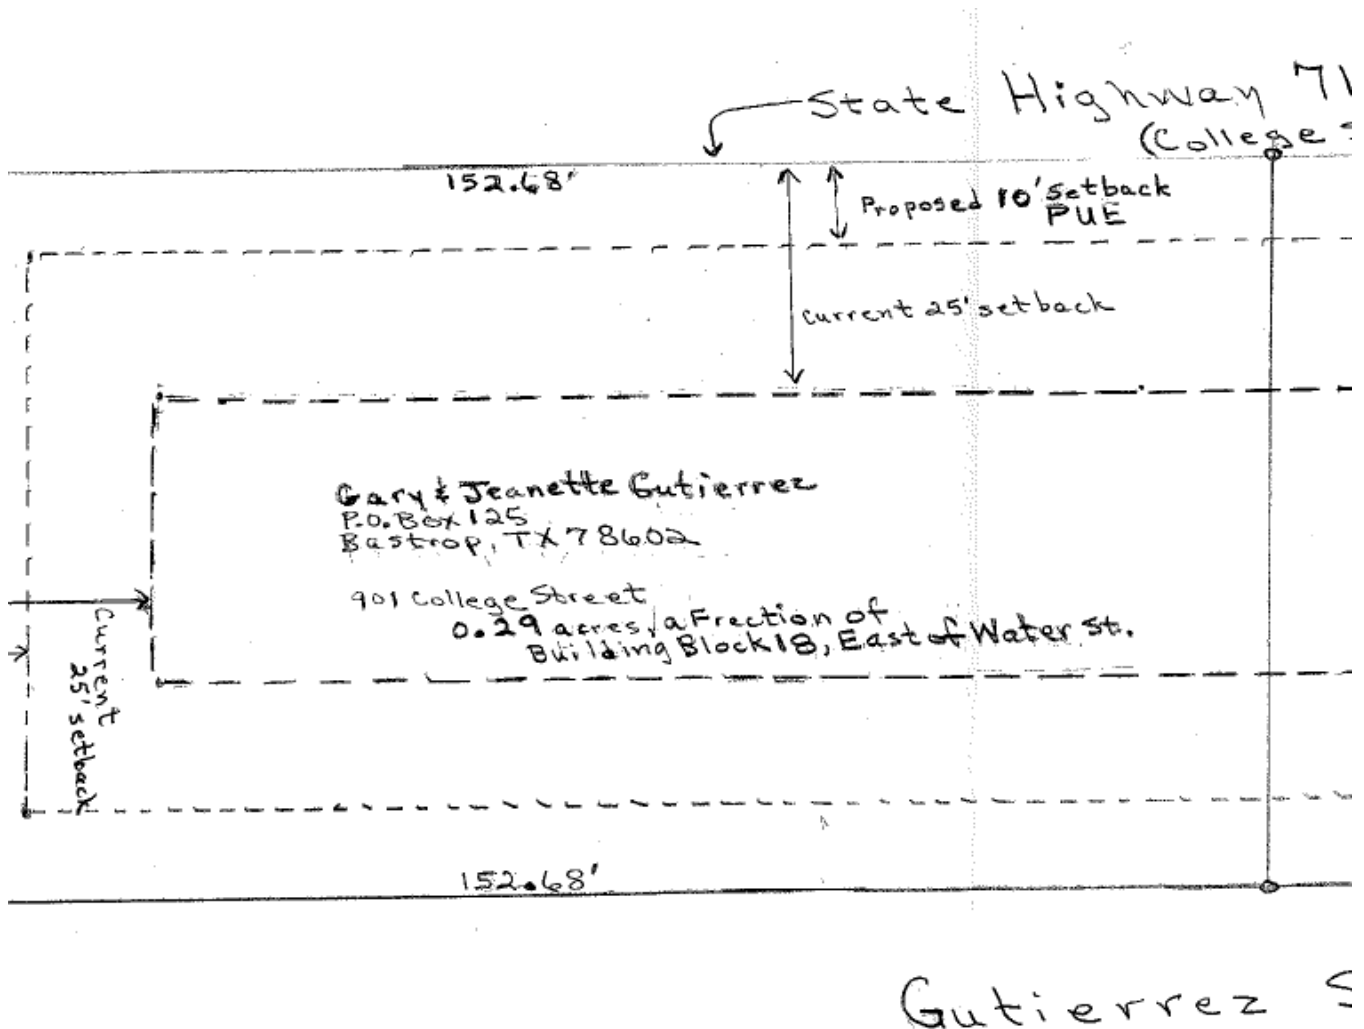 State Highway 71
(College
152.68'
Proposed 10' setback
PUE
Current 25' setback
Gary & Jeanette Gutierrez
P.O. Box 125
Bastrop, TX 78602
901 College Street
0.29 acres, a Frection of
Building Block 18, East of Water St.
Current
25' setback
152.68'
Gutierrez S